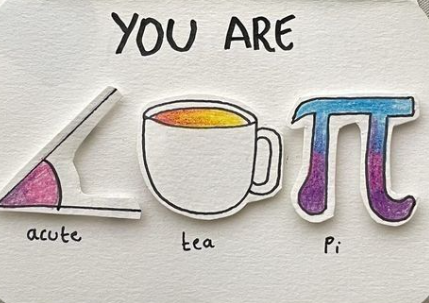 YOU ARE
acute tea Pi